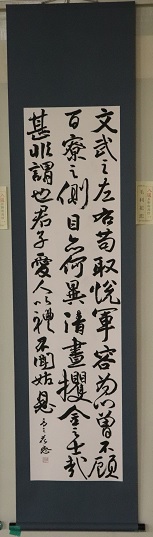 文武之左右苟取悦軍容為心曾不顧
百寮之側目亦何異清晝攫金之士哉
甚非謂也君子愛人以禮不聞姑息